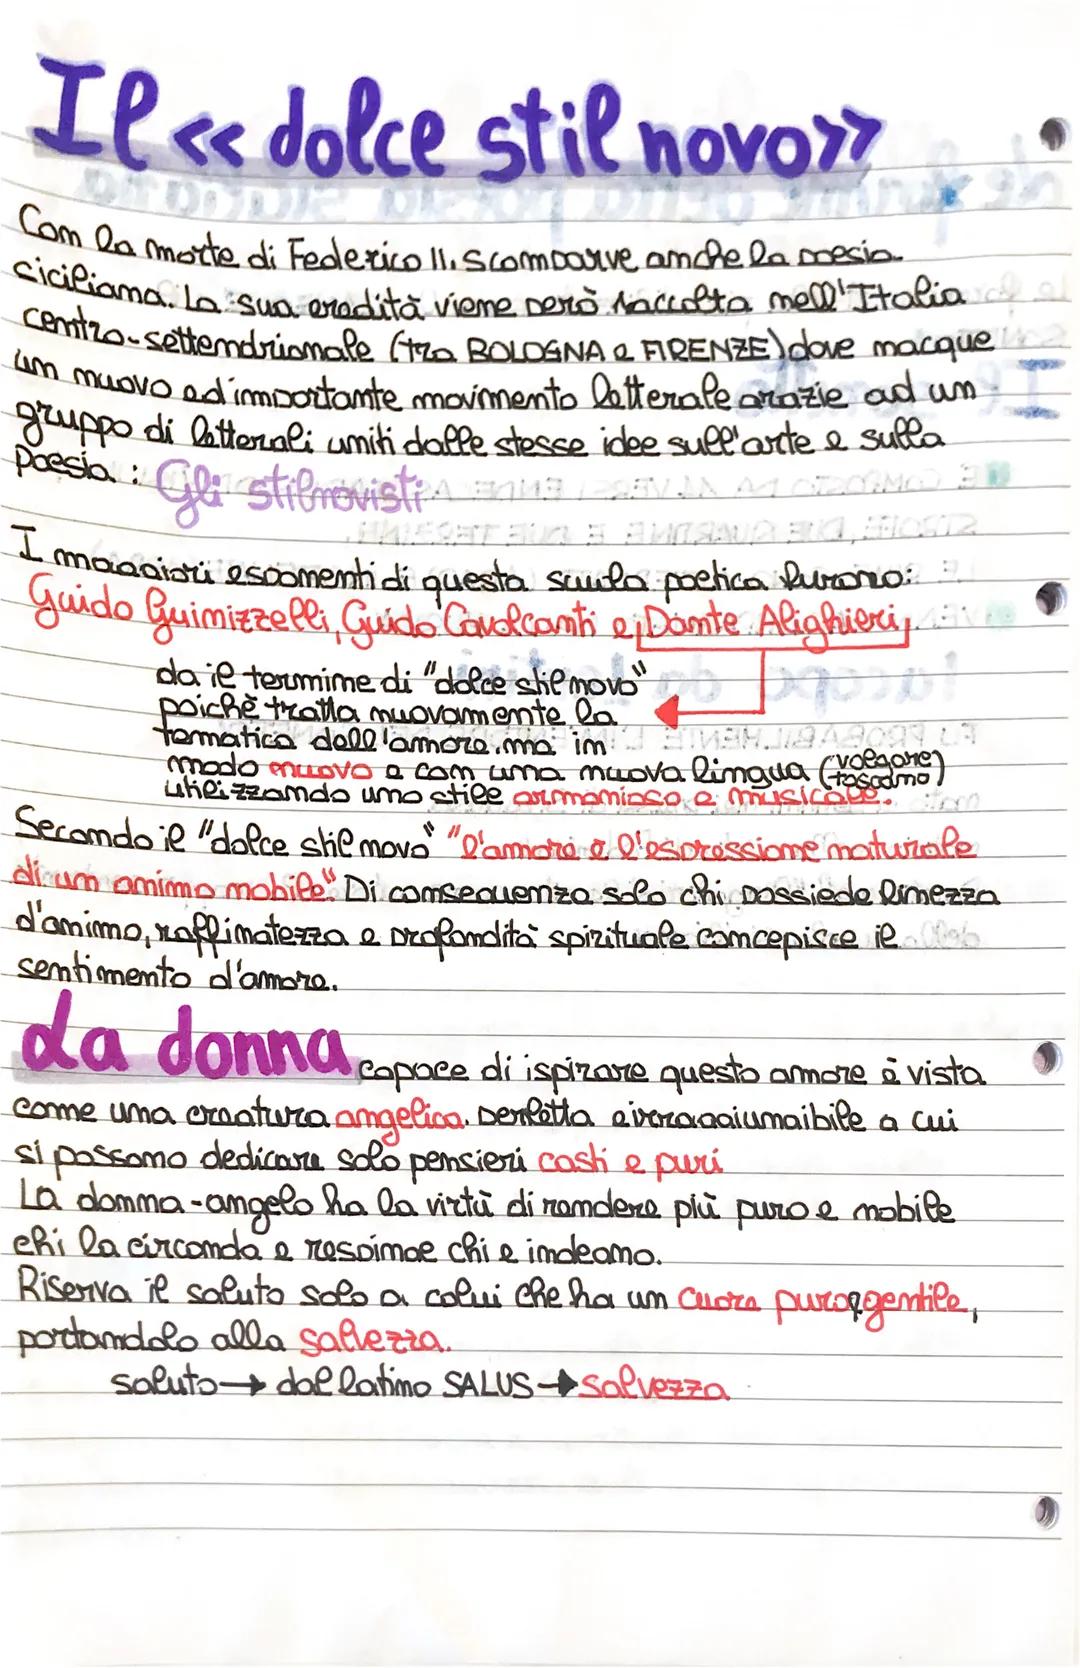 Il «dolce stil novo»
Con la morte di Federico II, scomparve anche la poesia
siciliana. La sua eredità viene però raccolta nell'Italia
centro-settendrionale (tra BOLOGNA e FIRENZE) dove nacque
un nuovo ed importante movimento letterale grazie ad un
gruppo di letterali uniti dalle stesse idee sull'arte e sulla
Poesia: Gli stilnovisti
I maggiori esponenti di questa scuola poetica furono:
Guido Guinizzelli, Guido Cavalcanti e, Dante Alighieri,
da il termine di "dolce stil novo"
poichè tratta nuovamente la
tematica dell'amore, ma in
modo nuovo e con una nuova lingua (volgare toscano)
utilizzando uno stile armonioso e musicale.
Secondo il "dolce stil novo" "l'amore e l'espressione naturale
di un animo nobile". Di conseguenza solo chi possiede finezza
d'animo, raffinatezza e profondità spirituale concepisce il
sentimento d'amore.
La donna capace di ispirare questo amore è vista
come una creatura angelica, perfetta e a cui
si possono dedicare solo pensieri casti e puri
La donna-angelo ha la virtù di rendere più puro e nobile
chi la circonda e chi e indegno.
Riserva il saluto solo a colui che ha un cuore puro gentile,
portandolo alla salvezza.
saluto → dal latino SALUS → salvezza